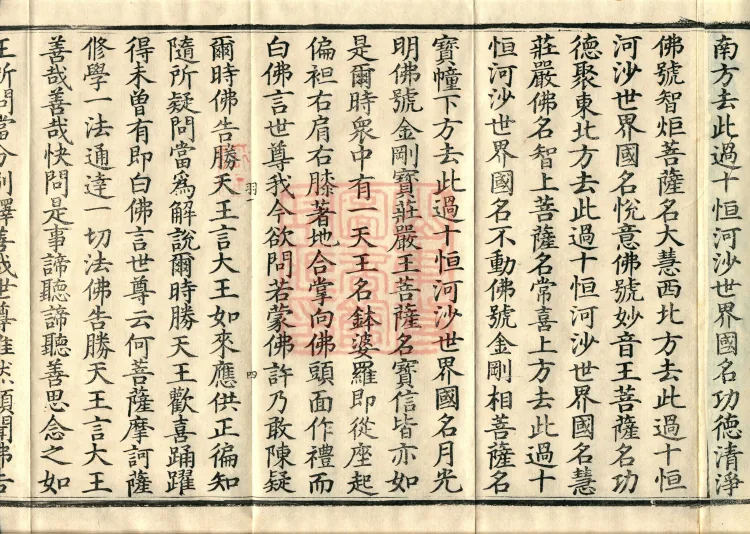 南方去此過十恒河沙世界國名功德清淨
佛號智炬菩薩名大慧西北方去此過十恒
河沙世界國名悅意佛號妙音王菩薩名功
德聚東北方去此過十恒河沙世界國名慧
莊嚴佛名智上菩薩名常喜上方去此過十
恒河沙世界國名不動佛號金剛相菩薩名
寶幢下方去此過十恒河沙世界國名月光
明佛號金剛寶莊嚴王菩薩名寶信皆亦如
是爾時衆中有一天王名鉢婆羅即從座起
偏袒右肩右膝著地合掌向佛頭面作禮而
白佛言世尊我今欲問若蒙佛許乃敢陳疑
羽一 四
爾時佛告勝天王言大王如來應供正徧知
隨所疑問當爲解說爾時勝天王歡喜踊躍
得未曾有即白佛言世尊云何菩薩摩訶薩
修學一法通達一切法佛告勝天王言大王
善哉善哉快問是事諦聽諦聽善思念之如
王所問當分別釋善哉世尊唯然願聞佛告